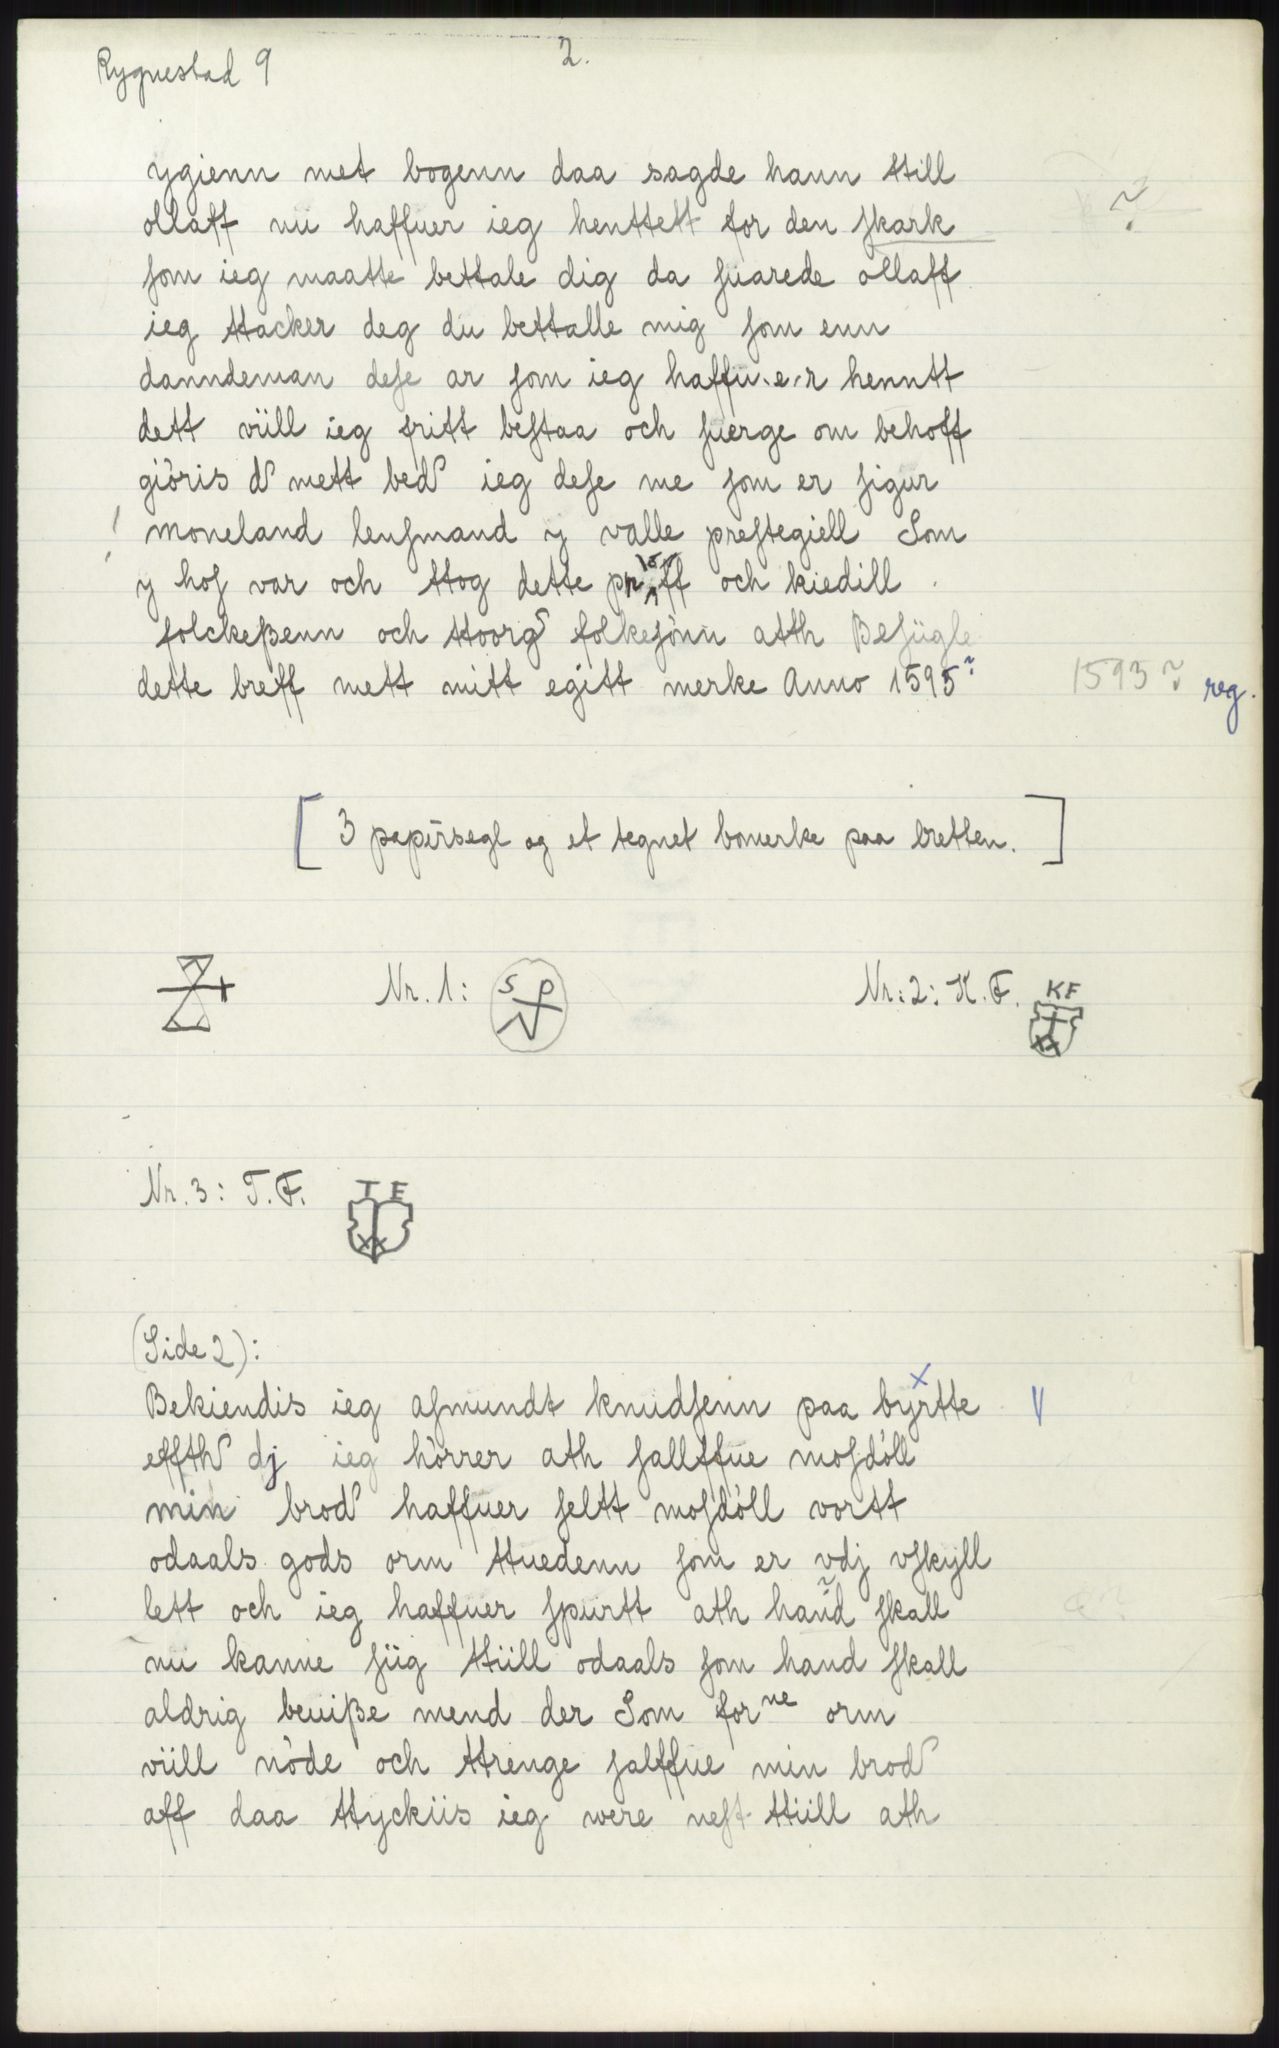 Rygnestad 9
2.
ygienn met bogenn daa sagde hann till
ollaff nu haffuer ieg henttett for den skark ?
som ieg maatte bettale dig da suarede ollaff
ieg ttacker deg du bettalle mig som enn
danndeman dese ar som ieg haffu.e.r henntt
dett vüll ieg fritt bestaa och suerge om behoff
giöris d mett bed ieg dese me som er sigur
! moneland lensmand y valle prestegiell Som
y hos var och ttog dette pröff och kiedill
folckeßenn och ttoorg folkesönn atth Besügle
dette breff mett mitt egitt merke Anno 1595? 1593? reg.
[ 3 papirsegl og et tegnet bomerke paa bretten. ]
Nr. 1: S P Nr: 2: K. F. KF
Nr. 3: T. F. T F
(Side 2):
Bekiendis ieg asmundt knudsenn paa byrtte
effth dj ieg hörrer ath sallffue mosdöll
min brod haffuer seltt mosdöll vortt
odaals gods orm ttuedenn som er vdj vskyll
lett och ieg haffuer spurtt ath hand skall
nu kanne süg ttüll odaals som hand skall
aldrig beuiße mend der Som forne orm
vüll nöde och ttrenge salffue min brod
aff daa ttyckiis ieg were nest ttüll ath